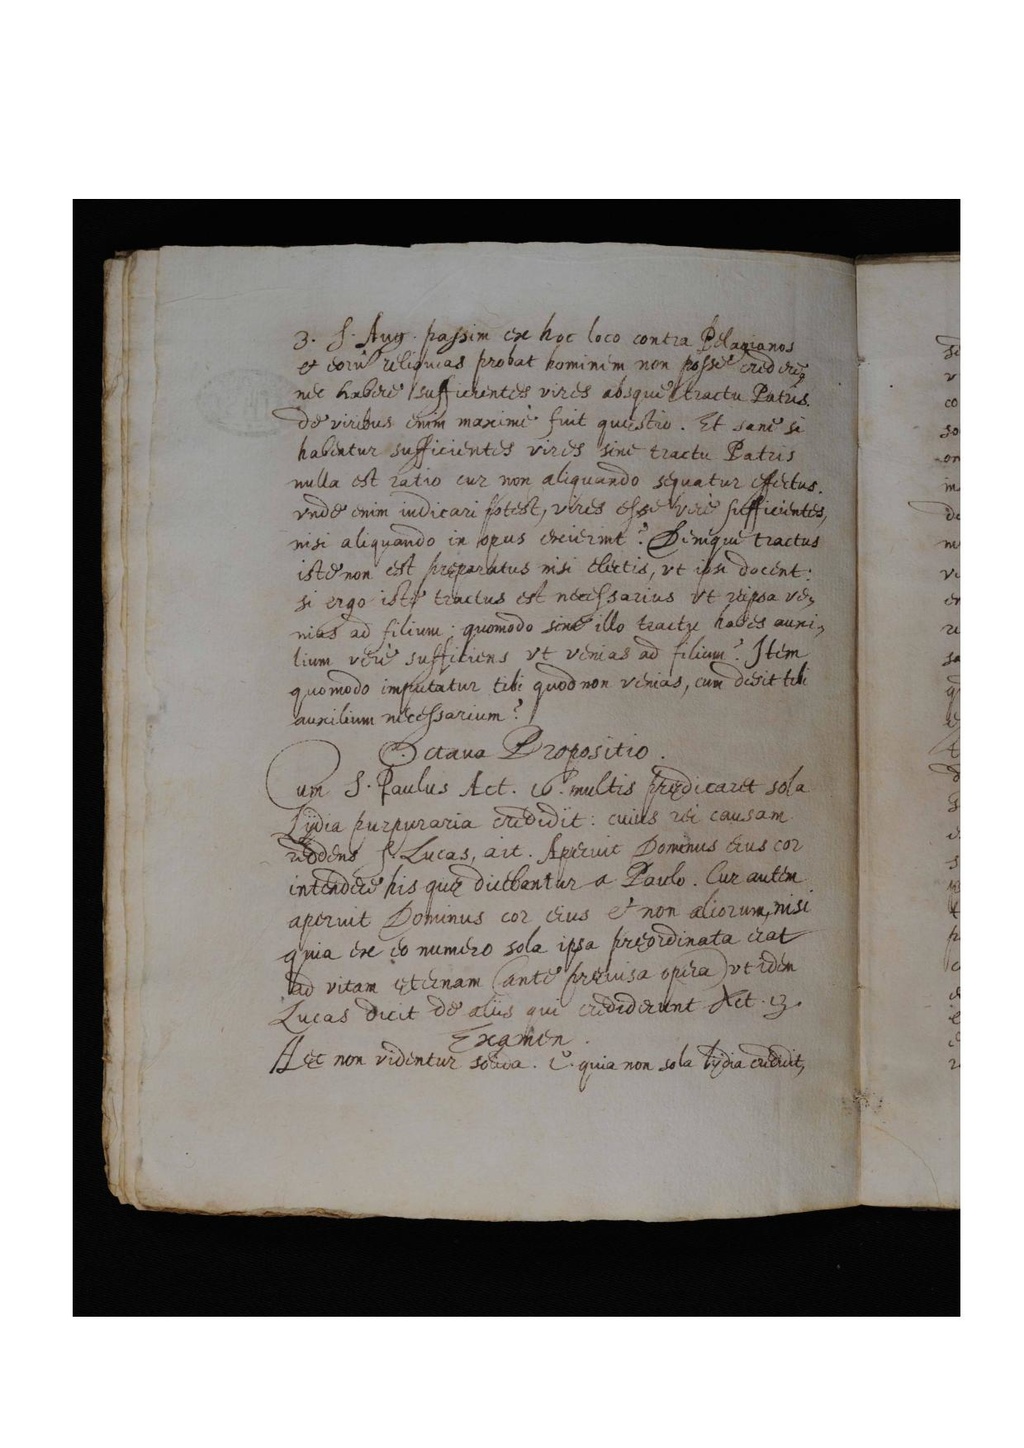 3. S. Aug. passim ex hoc loco contra Pelagianos
et eorū reliquias probat hominem non posse credere,
nec habere sufficientes vires absque tractu Patris.
de viribus enim maximè fuit quęstio. Et sanè si
habentur sufficientes vires sine tractu Patris
nulla est ratio cur non aliquando sequatur effectus.
vnde enim indicari potest, vires esse verè sufficientes,
nisi aliquando in opus exierint? Denique tractus
iste non est pręparatus nisi electis, vt ipsi docent:
si ergo iste tractus est necessarius vt reipsa ve,
nias ad filium; quomodo sine illo tractu habes auxi,
lium verè sufficiens vt venias ad filium? Item
quomodo imputatur tibi quod non venias, cum desit tibi
auxilium necessarium?
Octaua Propositio.
Cum S. Paulus Act. 16. multis prędicaret sola
Lydia purpuraria credidit: cuius rei causam
reddens S. Lucas, ait. Aperuit Dominus eius cor
intendere his quę dicebantur a Paulo. Cur autem
aperuit Dominus cor eius et non aliorum, nisi
quia ex eo numero sola ipsa pręordinata erat
ad vitam ęternam (ante pręuisa opera) vt idem
Lucas dicit de aliis qui crediderunt Act. 13.
Examen.
Hęc non videntur solida. 1.º quia non sola Lydia credidit,